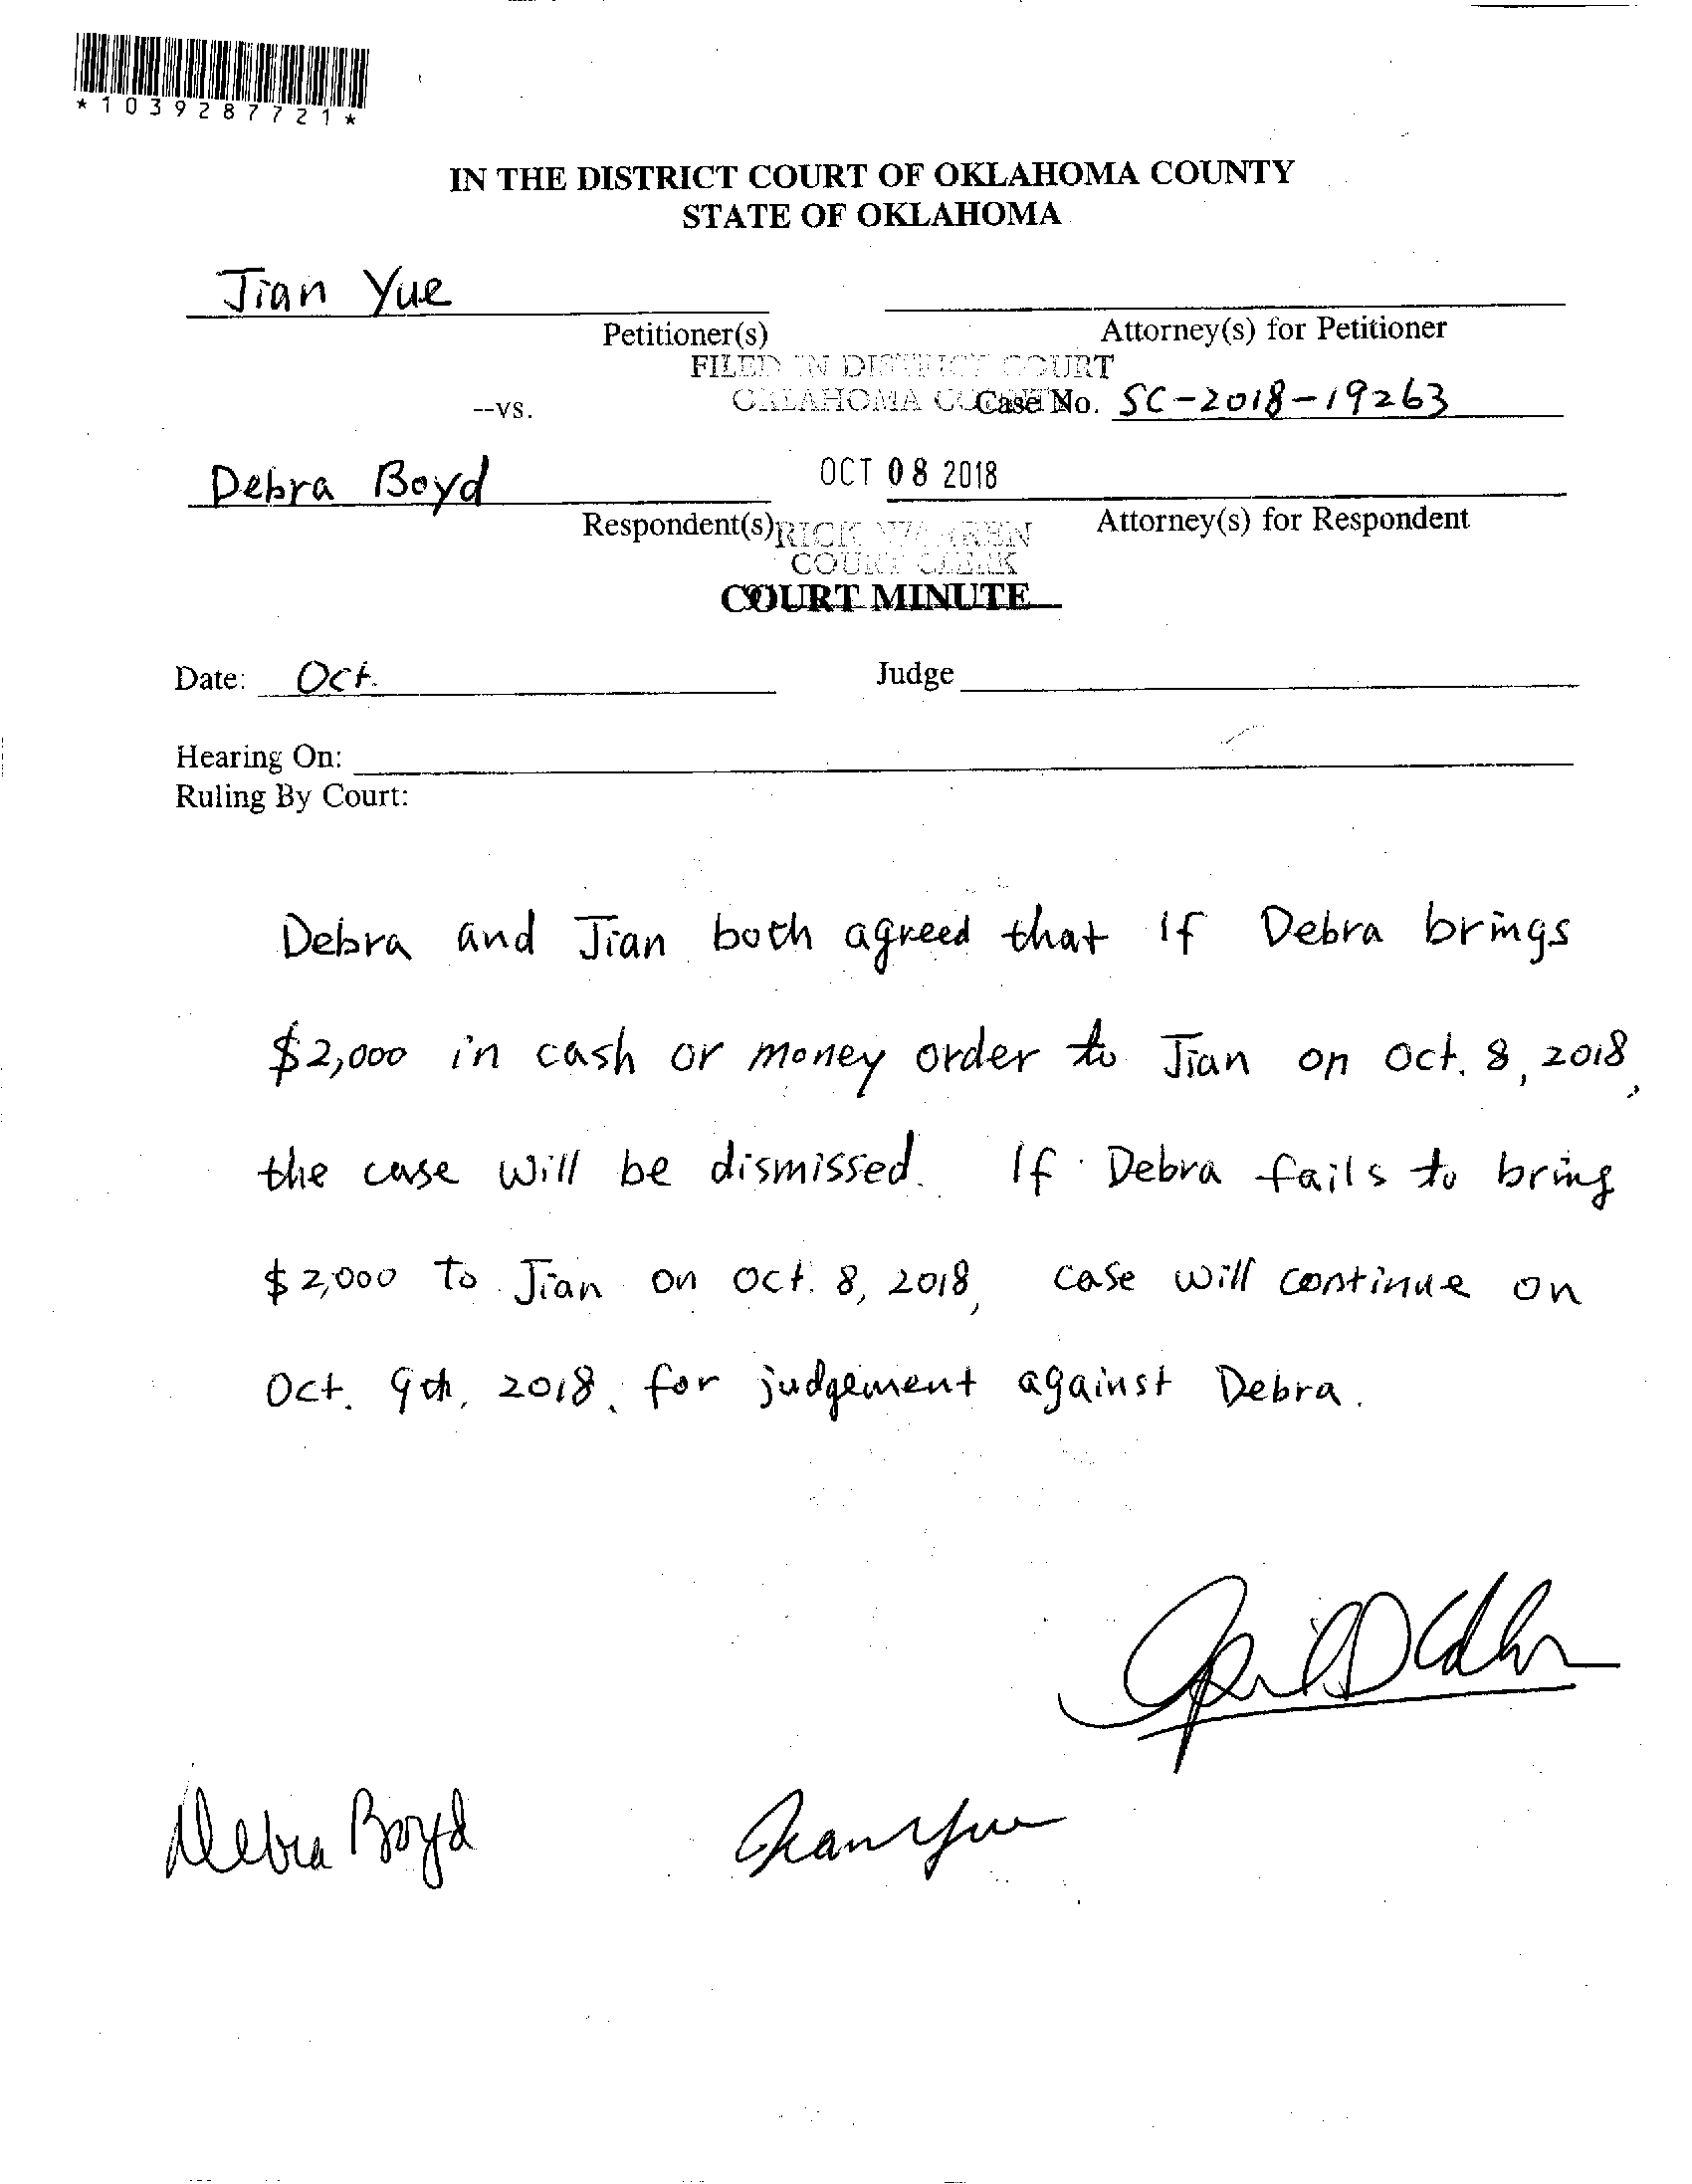 *1039287721*
IN THE DISTRICT COURT OF OKLAHOMA COUNTY
STATE OF OKLAHOMA
Jian Yue
Petitioner(s)
Attorney(s) for Petitioner
FILED IN DISTRICT COURT
OKLAHOMA COUNTY
--vs.
Case No. SC-2018-19263
Debra Boyd
OCT 08 2018
Respondent(s)
Attorney(s) for Respondent
RICK WARREN
COURT CLERK
COURT MINUTE
Date: Oct.
Judge
Hearing On:
Ruling By Court:
Debra and Jian both agreed that if Debra brings
$2,000 in cash or money order to Jian on Oct. 8, 2018,
the case will be dismissed. If Debra fails to bring
$2,000 to Jian on Oct. 8, 2018, case will continue on
Oct. 9th, 2018, for judgement against Debra.
Debra Boyd
Jian Yue